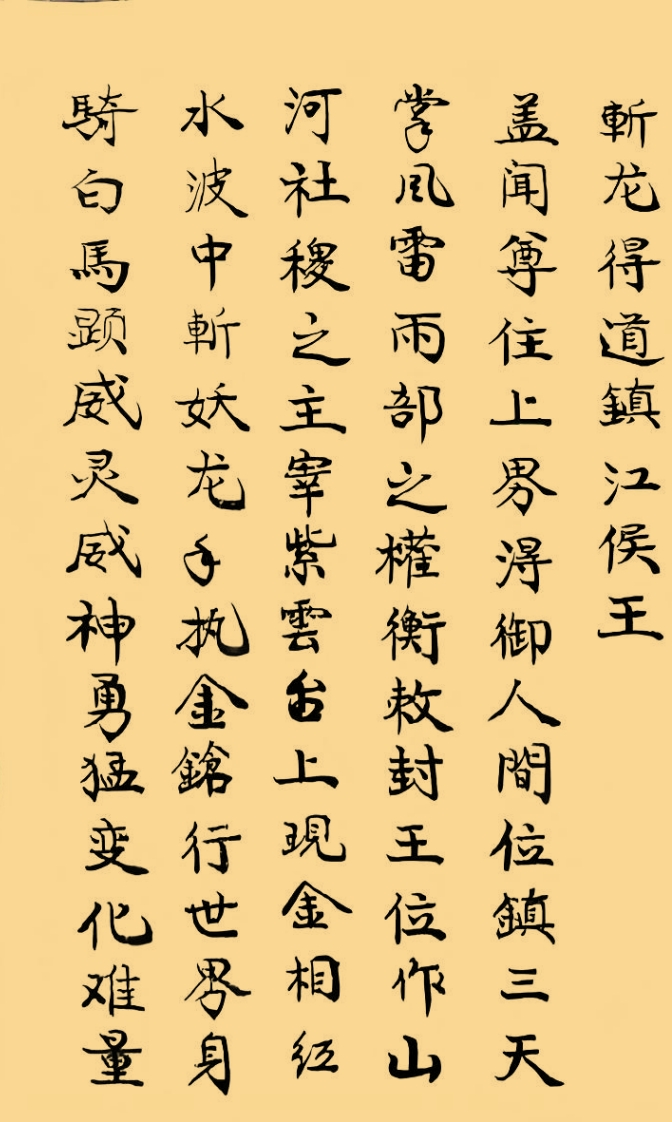 斬龙得道鎮江侯王
盖闻尊住上界得御人間位鎮三天
掌风雷雨部之權衡敕封王位作山
河社稷之主宰紫雲台上現金相红
水波中斬妖龙手执金鎗行世界身
騎白馬顕威灵威神勇猛变化难量